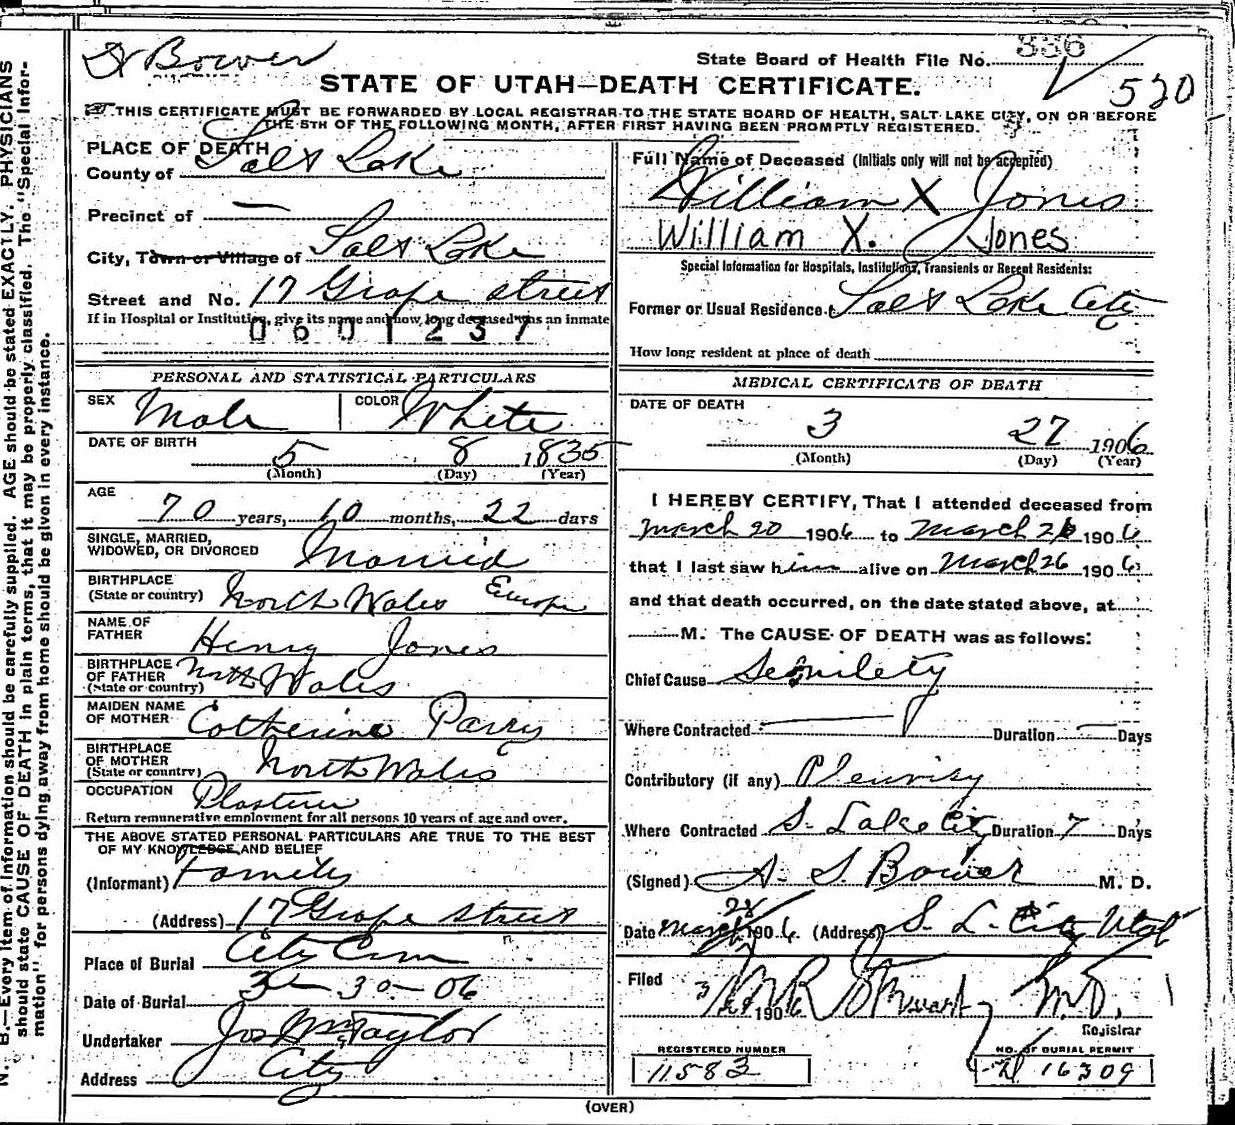 Dr Bower
State Board of Health File No. 336
520
STATE OF UTAH—DEATH CERTIFICATE.
THIS CERTIFICATE MUST BE FORWARDED BY LOCAL REGISTRAR TO THE STATE BOARD OF HEALTH, SALT LAKE CITY, ON OR BEFORE
THE 5TH OF THE FOLLOWING MONTH, AFTER FIRST HAVING BEEN PROMPTLY REGISTERED.
PLACE OF DEATH
County of Salt Lake
Precinct of —
City, Town or Village of Salt Lake
Street and No. 17 Grape street
If in Hospital or Institution, give its name and how long deceased was an inmate
0601237
PERSONAL AND STATISTICAL PARTICULARS
SEX Male COLOR White
DATE OF BIRTH
5 8 1835
(Month) (Day) (Year)
AGE
70 years, 10 months, 22 days
SINGLE, MARRIED,
WIDOWED, OR DIVORCED Married
BIRTHPLACE
(State or country) North Wales Europe
NAME OF
FATHER Henry Jones
BIRTHPLACE
OF FATHER
(State or country) North Wales
MAIDEN NAME
OF MOTHER Catherine Parry
BIRTHPLACE
OF MOTHER
(State or country) North Wales
OCCUPATION Plasterer
Return remunerative employment for all persons 10 years of age and over.
THE ABOVE STATED PERSONAL PARTICULARS ARE TRUE TO THE BEST
OF MY KNOWLEDGE AND BELIEF
(Informant) Family
(Address) 17 Grape street
Place of Burial City Cem
Date of Burial 3 - 30 - 06
Undertaker Jos Wm Taylor
Address City
Full Name of Deceased (Initials only will not be accepted)
William X Jones
William X. Jones
Special Information for Hospitals, Institutions, Transients or Recent Residents:
Former or Usual Residence. Salt Lake City
How long resident at place of death
MEDICAL CERTIFICATE OF DEATH
DATE OF DEATH
3 27 1906
(Month) (Day) (Year)
I HEREBY CERTIFY, That I attended deceased from
March 20 1906 to March 26 1906
that I last saw him alive on March 26 1906
and that death occurred, on the date stated above, at
M. The CAUSE OF DEATH was as follows:
Chief Cause Senility
Where Contracted — Duration — Days
Contributory (if any) Pleurisy
Where Contracted S. Lake City Duration 7 Days
(Signed) A. S. Bower M. D.
Date March 28 1906. (Address) S. L. City Utah
Filed 3 190 M.D.
Registrar
REGISTERED NUMBER
11583
NO. OF BURIAL PERMIT
16309
(OVER)
N. B.—Every item of information should be carefully supplied. AGE should be stated EXACTLY. PHYSICIANS
should state CAUSE OF DEATH in plain terms, that it may be properly classified. The "Special Infor-
mation" for persons dying away from home should be given in every instance.